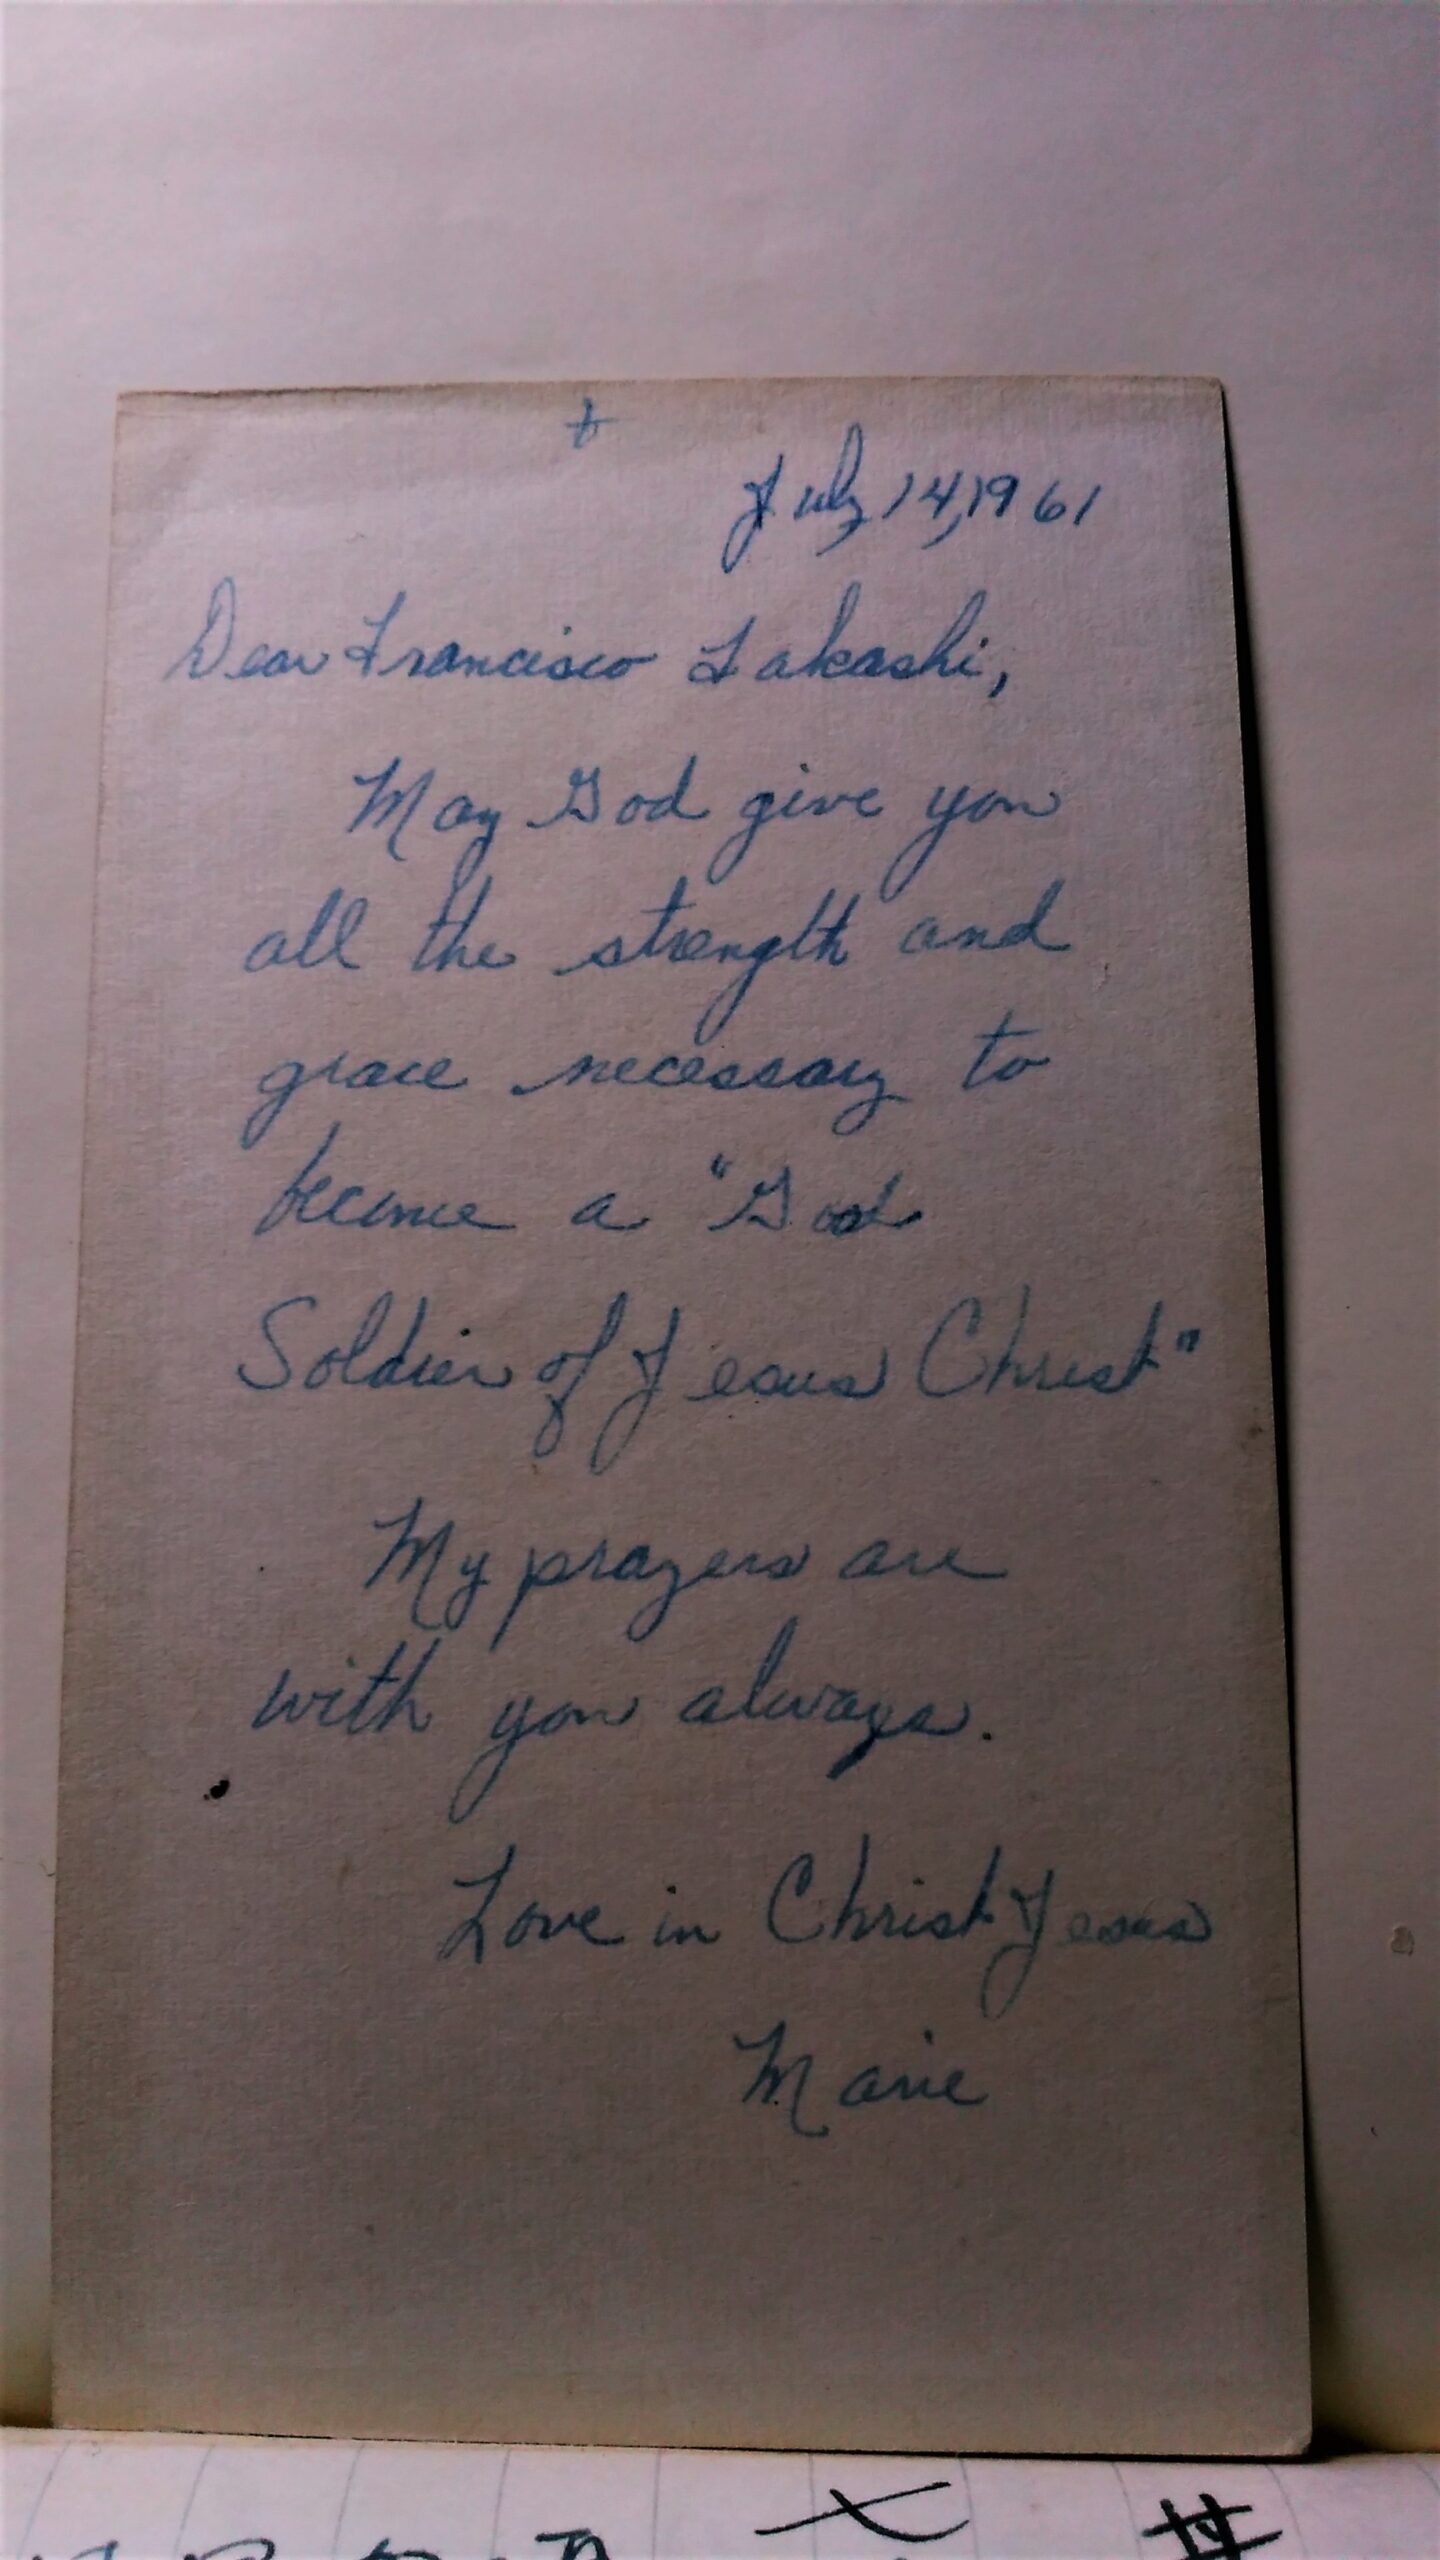 +
July 14, 1961
Dear Francisco Takashi,
May God give you
all the strength and
grace necessary to
become a "Good
Soldier of Jesus Christ"
My prayers are
with you always.
Love in Christ Jesus
Marie